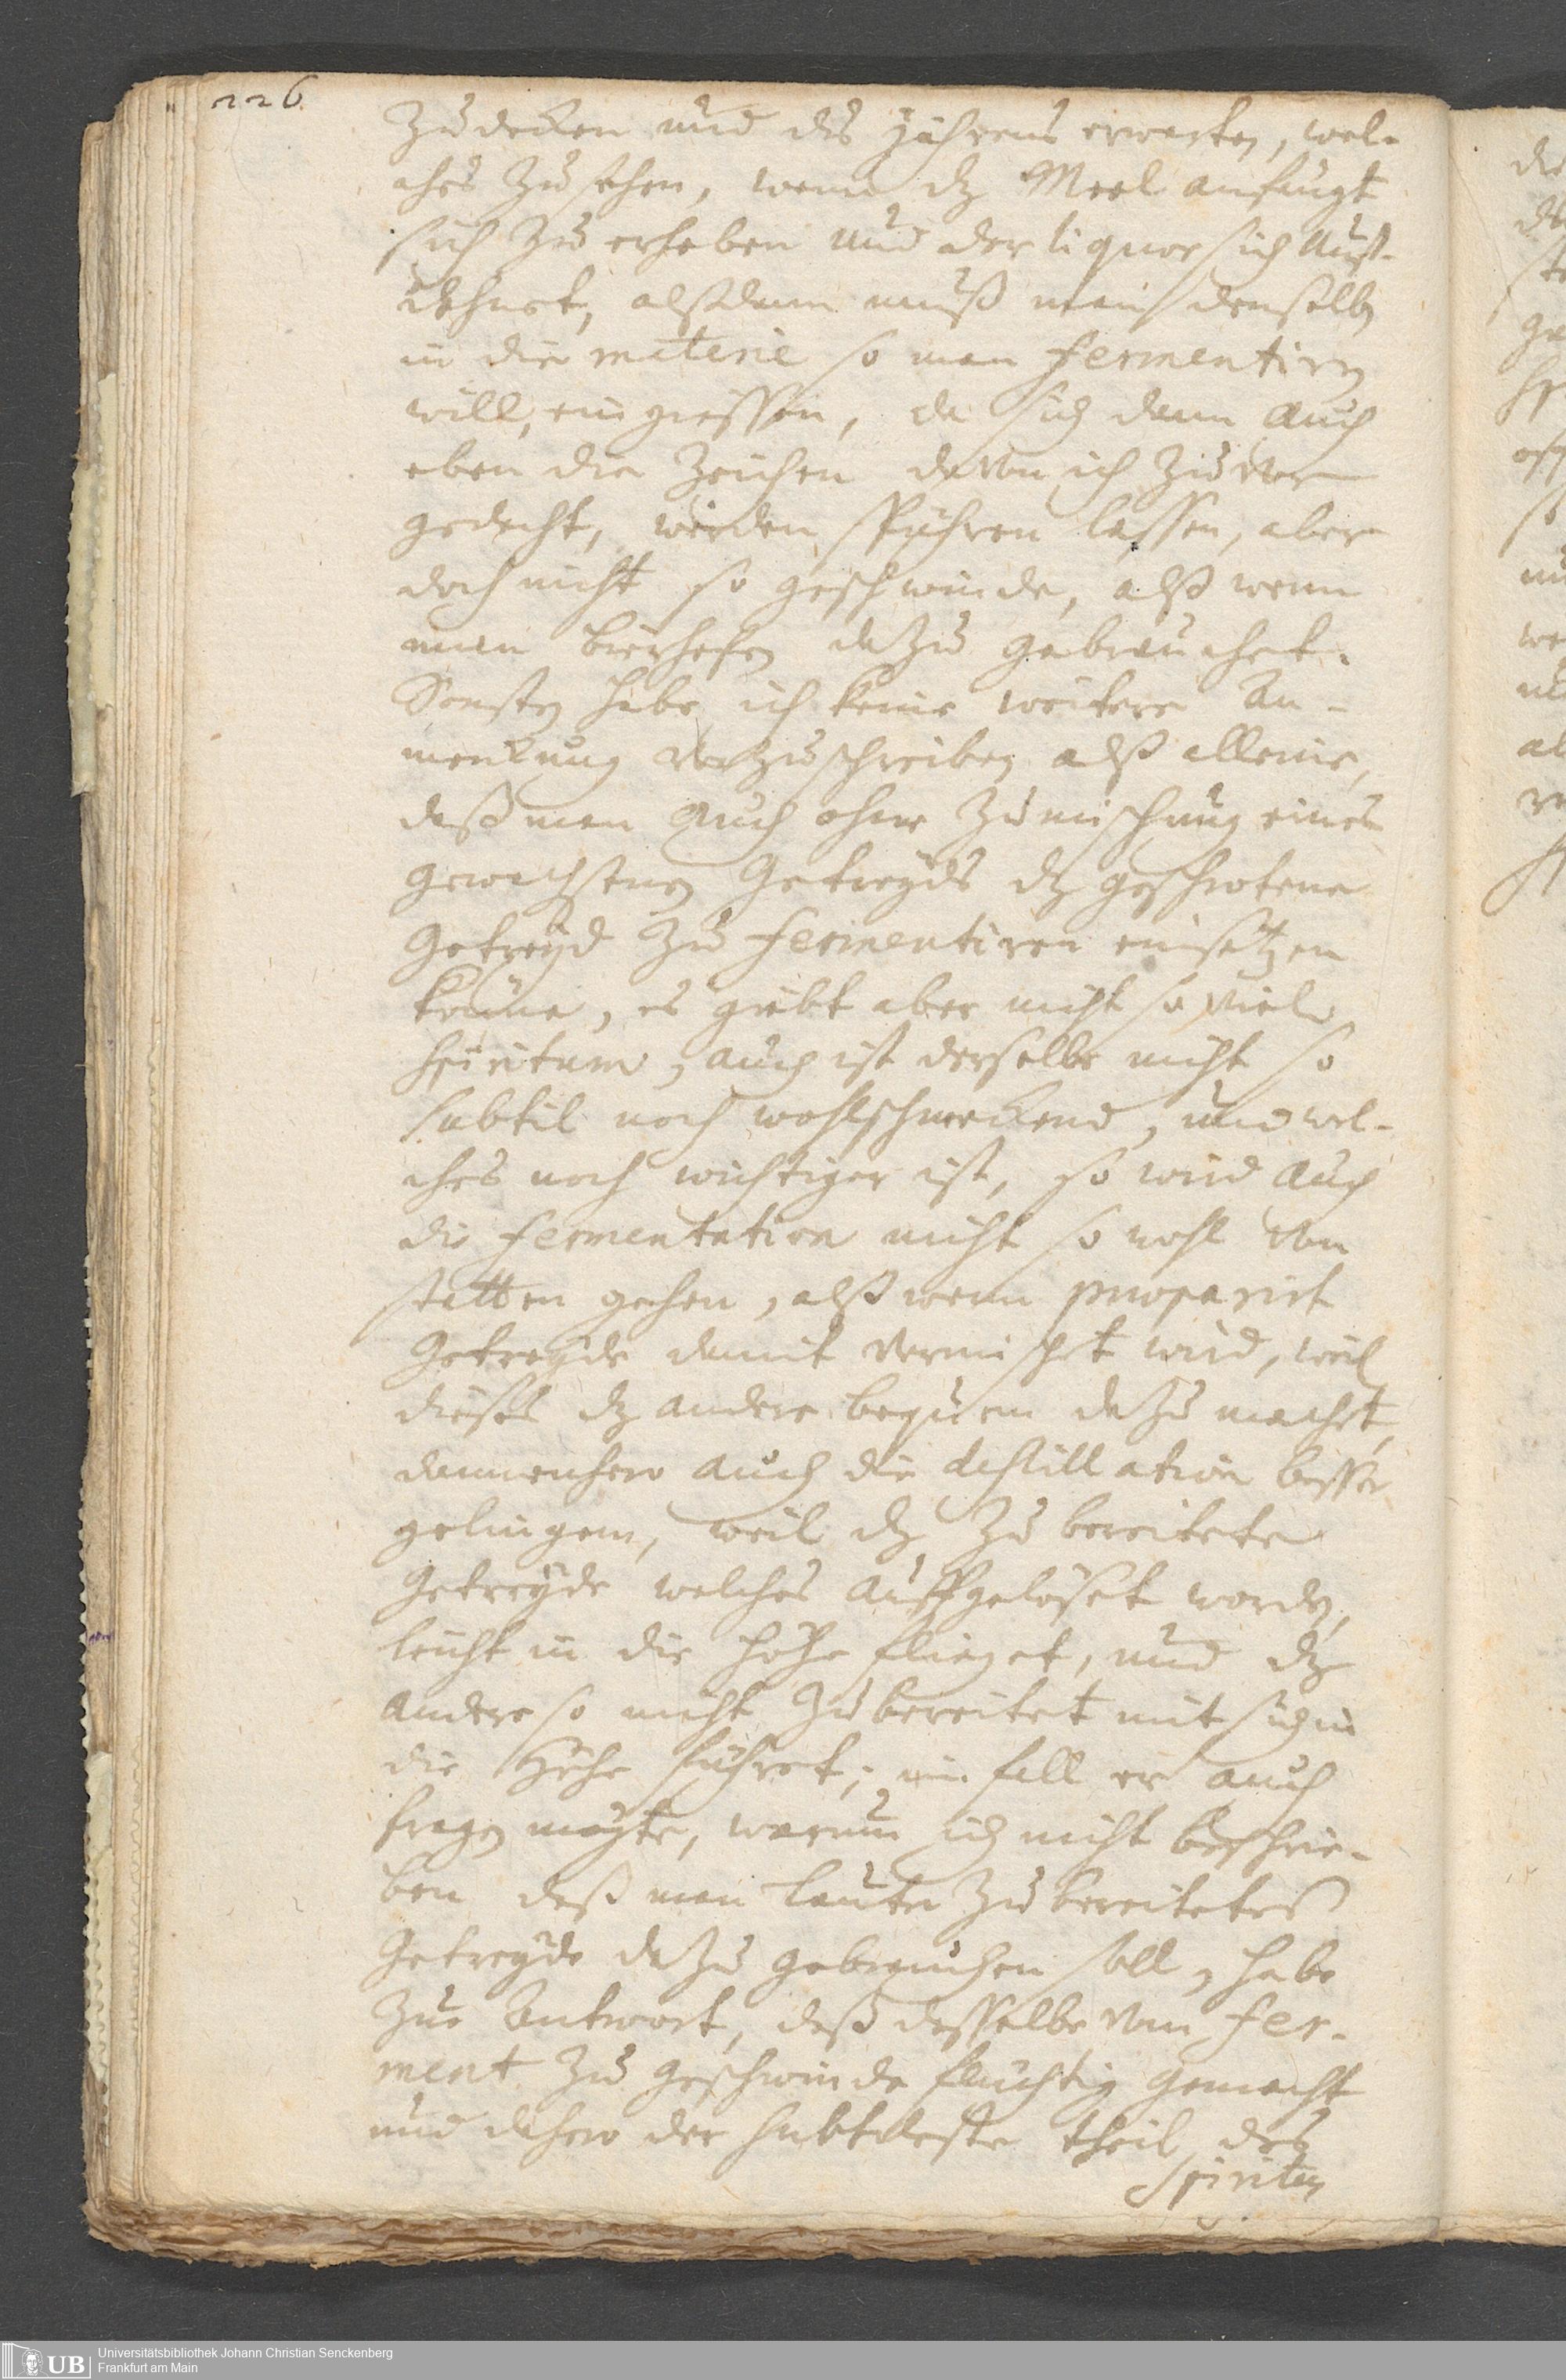 226.
Zudecken und des Jährens erwarten, wel-
ches zu sehen, wenn dz Meel anfangt
sich zu erheben und der liquor sich auß-
dehnet, alßdann muß man denselben
in die materie so man fermentiren
will, eingiessen, da sich dann auch
eben die Zeichen davon ich zuvor
gedacht, werden spühren lassen, aber
doch nicht so geschwinde, alß wenn
man bierhefen dazu gebrauchet.
Sonsten habe ich keine weitere An-
merckung vorzuschreiben alß alleine,
daß man auch ohne Zumischung eines
gewachsenen Getreyds dz geschrotene
Getreyd zu fermentiren einsetzen
könne, es giebt aber nicht so viel
spiritum, auch ist derselbe nicht so
subtil noch wohlschmeckend, und wel-
ches noch wichtiger ist, so wird auch
die fermentation nicht so wohl von
statten gehen, alß wenn præparirt
Getreyde damit vermischt wird, weil
dieses dz andere bequem dazu machet,
dannenhero auch die destillation besser
gelingen, weil dz zubereitete
Getreyde welches auffgelöset worden,
leicht in die Höhe flieget, und dz
andere so nicht zubereitet mit sich in
die Höhe führet; im fall er auch
fragen mögte, warum ich nicht beschrie-
ben daß man lauter zubereitetes
Getreyde dazu gebrauchen soll, habe
zur Antwort, daß dasselbe vom fer-
ment zu geschwinde fluchtig gemacht
und dahero der subtileste theil des
Spiritus
UB Universitätsbibliothek Johann Christian Senckenberg
Frankfurt am Main